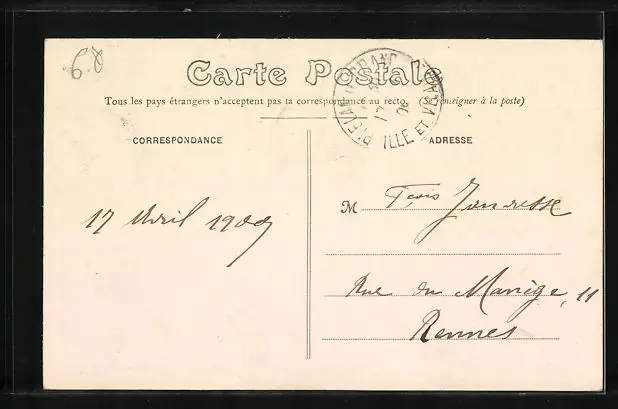 6.8
Carte Postale
Tous les pays étrangers n'acceptent pas la correspondance au recto. (Se renseigner à la poste)
CORRESPONDANCE
ADRESSE
ILLE ET
17 Avril 1909
M
Rue du Manège, 11
Rennes